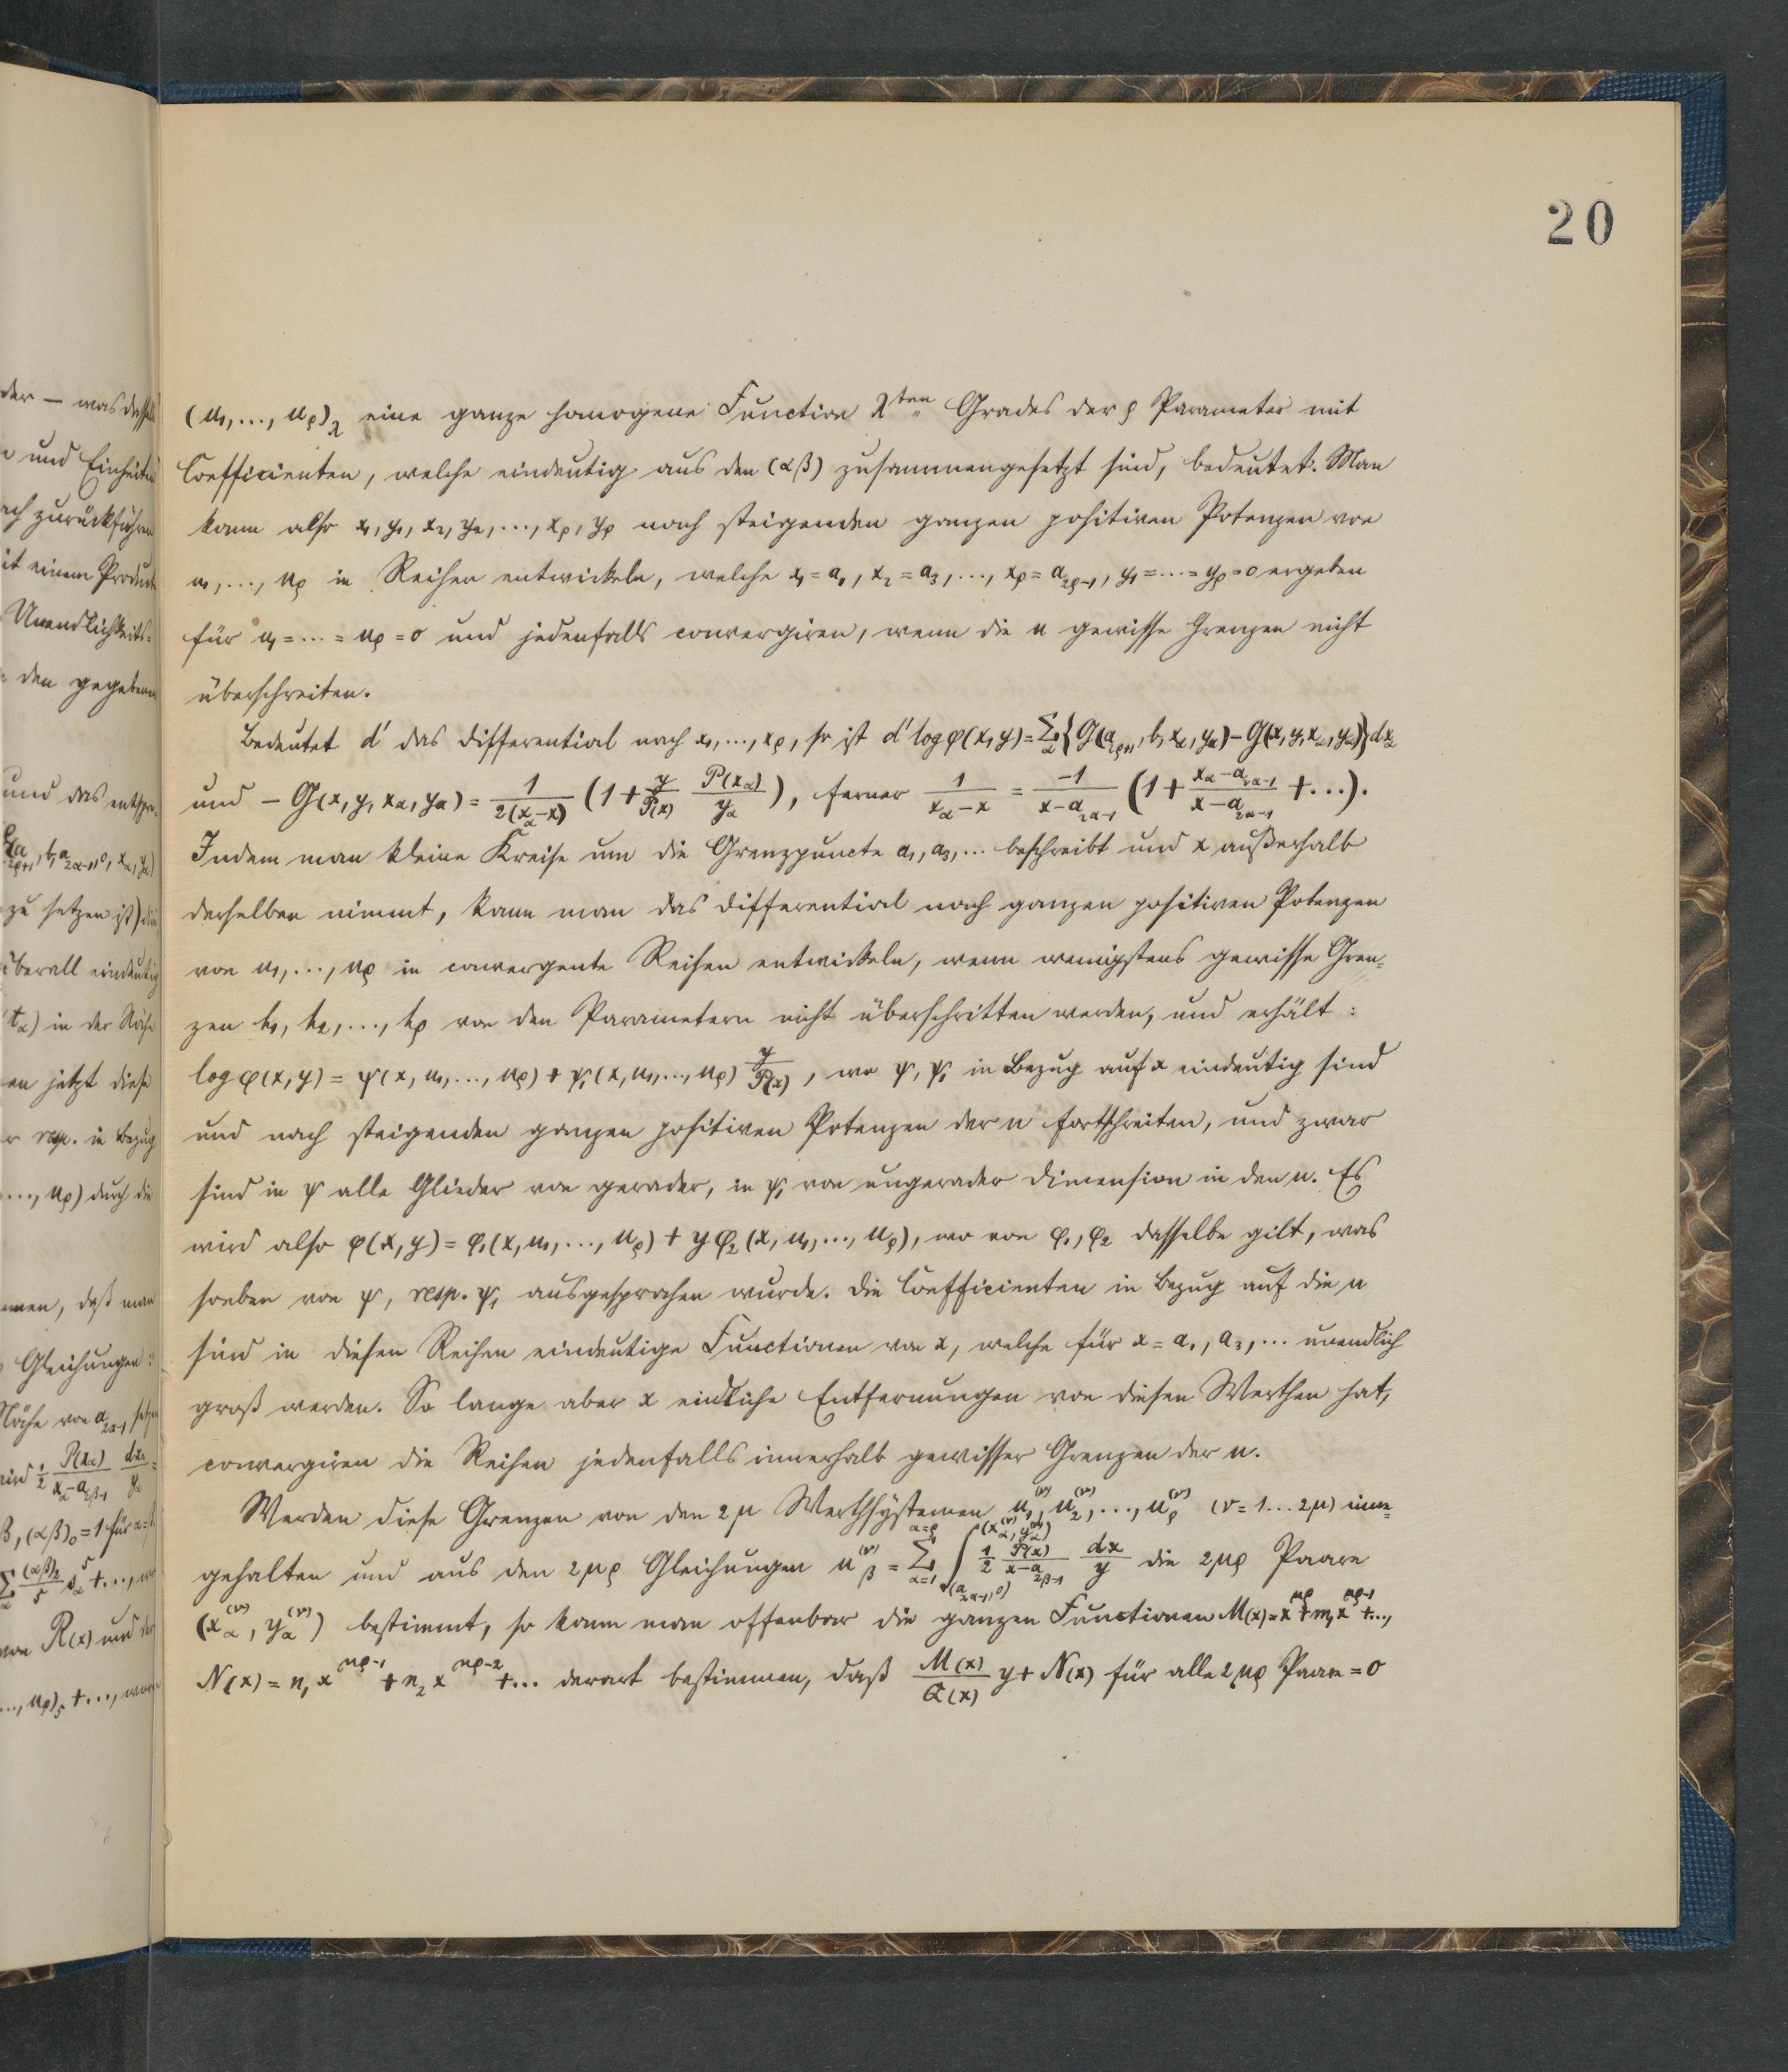 20
(u₁, ..., u_ρ)_λ eine ganze homogene Function λ^ten Grades der ρ Parameter mit
Coefficienten, welche eindeutig aus den (αβ) zusammengesetzt sind, bedeutet. Man
kann also x₁, y₁, x₂, y₂, ..., x_ρ, y_ρ nach steigenden ganzen positiven Potenzen von
u₁, ..., u_ρ in Reihen entwickeln, welche x₁ = a₁, x₂ = a₃, ..., x_ρ = a_{2ρ-1}, y₁ = ... = y_ρ = 0 ergeben
für u₁ = ... = u_ρ = 0 und jedenfalls convergiren, wenn die u gewisse Grenzen nicht
überschreiten.
Bedeutet d' das Differential nach x₁, ..., x_ρ, so ist d' log φ(x, y) = Σ_α {G(a_{2ρ+1}, b, x_α, y_α) - G(x, y, x_α, y_α)} dx_α
und - G(x, y, x_α, y_α) = 1/2(x_α - x) (1 + y/P(x) P(x_α)/y_α), ferner 1/x_α - x = -1/x - a_{2α-1} (1 + x_α - a_{2α-1}/x - a_{2α-1} + ...).
Indem man kleine Kreise um die Grenzpuncte a₁, a₃, ... beschreibt und x außerhalb
derselben nimmt, kann man das Differential nach ganzen positiven Potenzen
von u₁, ..., u_ρ in convergente Reihen entwickeln, wenn wenigstens gewisse Gren-
zen k₁, k₂, ..., k_ρ von den Parametern nicht überschritten werden, und erhält:
log φ(x, y) = ψ(x, u₁, ..., u_ρ) + ψ₁(x, u₁, ..., u_ρ) y/P(x), wo ψ, ψ₁ in Bezug auf x eindeutig sind
und nach steigenden ganzen positiven Potenzen der u fortschreiten, und zwar
sind in ψ alle Glieder von gerader, in ψ₁ von ungerader Dimension in den u. Es
wird also φ(x, y) = φ₁(x, u₁, ..., u_ρ) + y φ₂(x, u₁, ..., u_ρ), wo von φ₁, φ₂ dasselbe gilt, was
soeben von ψ, resp. ψ₁ ausgesprochen wurde. Die Coefficienten in Bezug auf die u
sind in diesen Reihen eindeutige Functionen von x, welche für x = a₁, a₃, ... unendlich
groß werden. So lange aber x endliche Entfernungen von diesen Werthen hat,
convergiren die Reihen jedenfalls innerhalb gewisser Grenzen der u.
Werden diese Grenzen von den 2μ Werthsystemen u₁^(ν), u₂^(ν), ..., u_ρ^(ν) (ν = 1 ... 2μ) inne-
gehalten und aus den 2μρ Gleichungen u_β^(ν) = Σ_{α=1}^{α=ρ} ∫_{(a_{2α-1}, 0)}^{(x_α^(ν), y_α^(ν))} 1/2 P(x)/x - a_{2β-1} dx/y die 2μρ Paare
(x_α^(ν), y_α^(ν)) bestimmt, so kann man offenbar die ganzen Functionen M(x) = x^{μρ} + m₁x^{μρ-1} + ...,
N(x) = n₁x^{μρ-1} + n₂x^{μρ-2} + ... derart bestimmen, daß M(x)/Q(x) y + N(x) für alle 2μρ Paare = 0